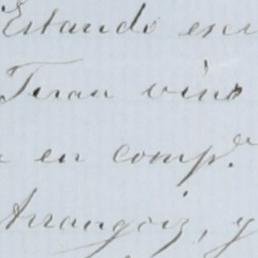 Estando escr
Teran vino
a en comp.ª
Arrangoiz, y